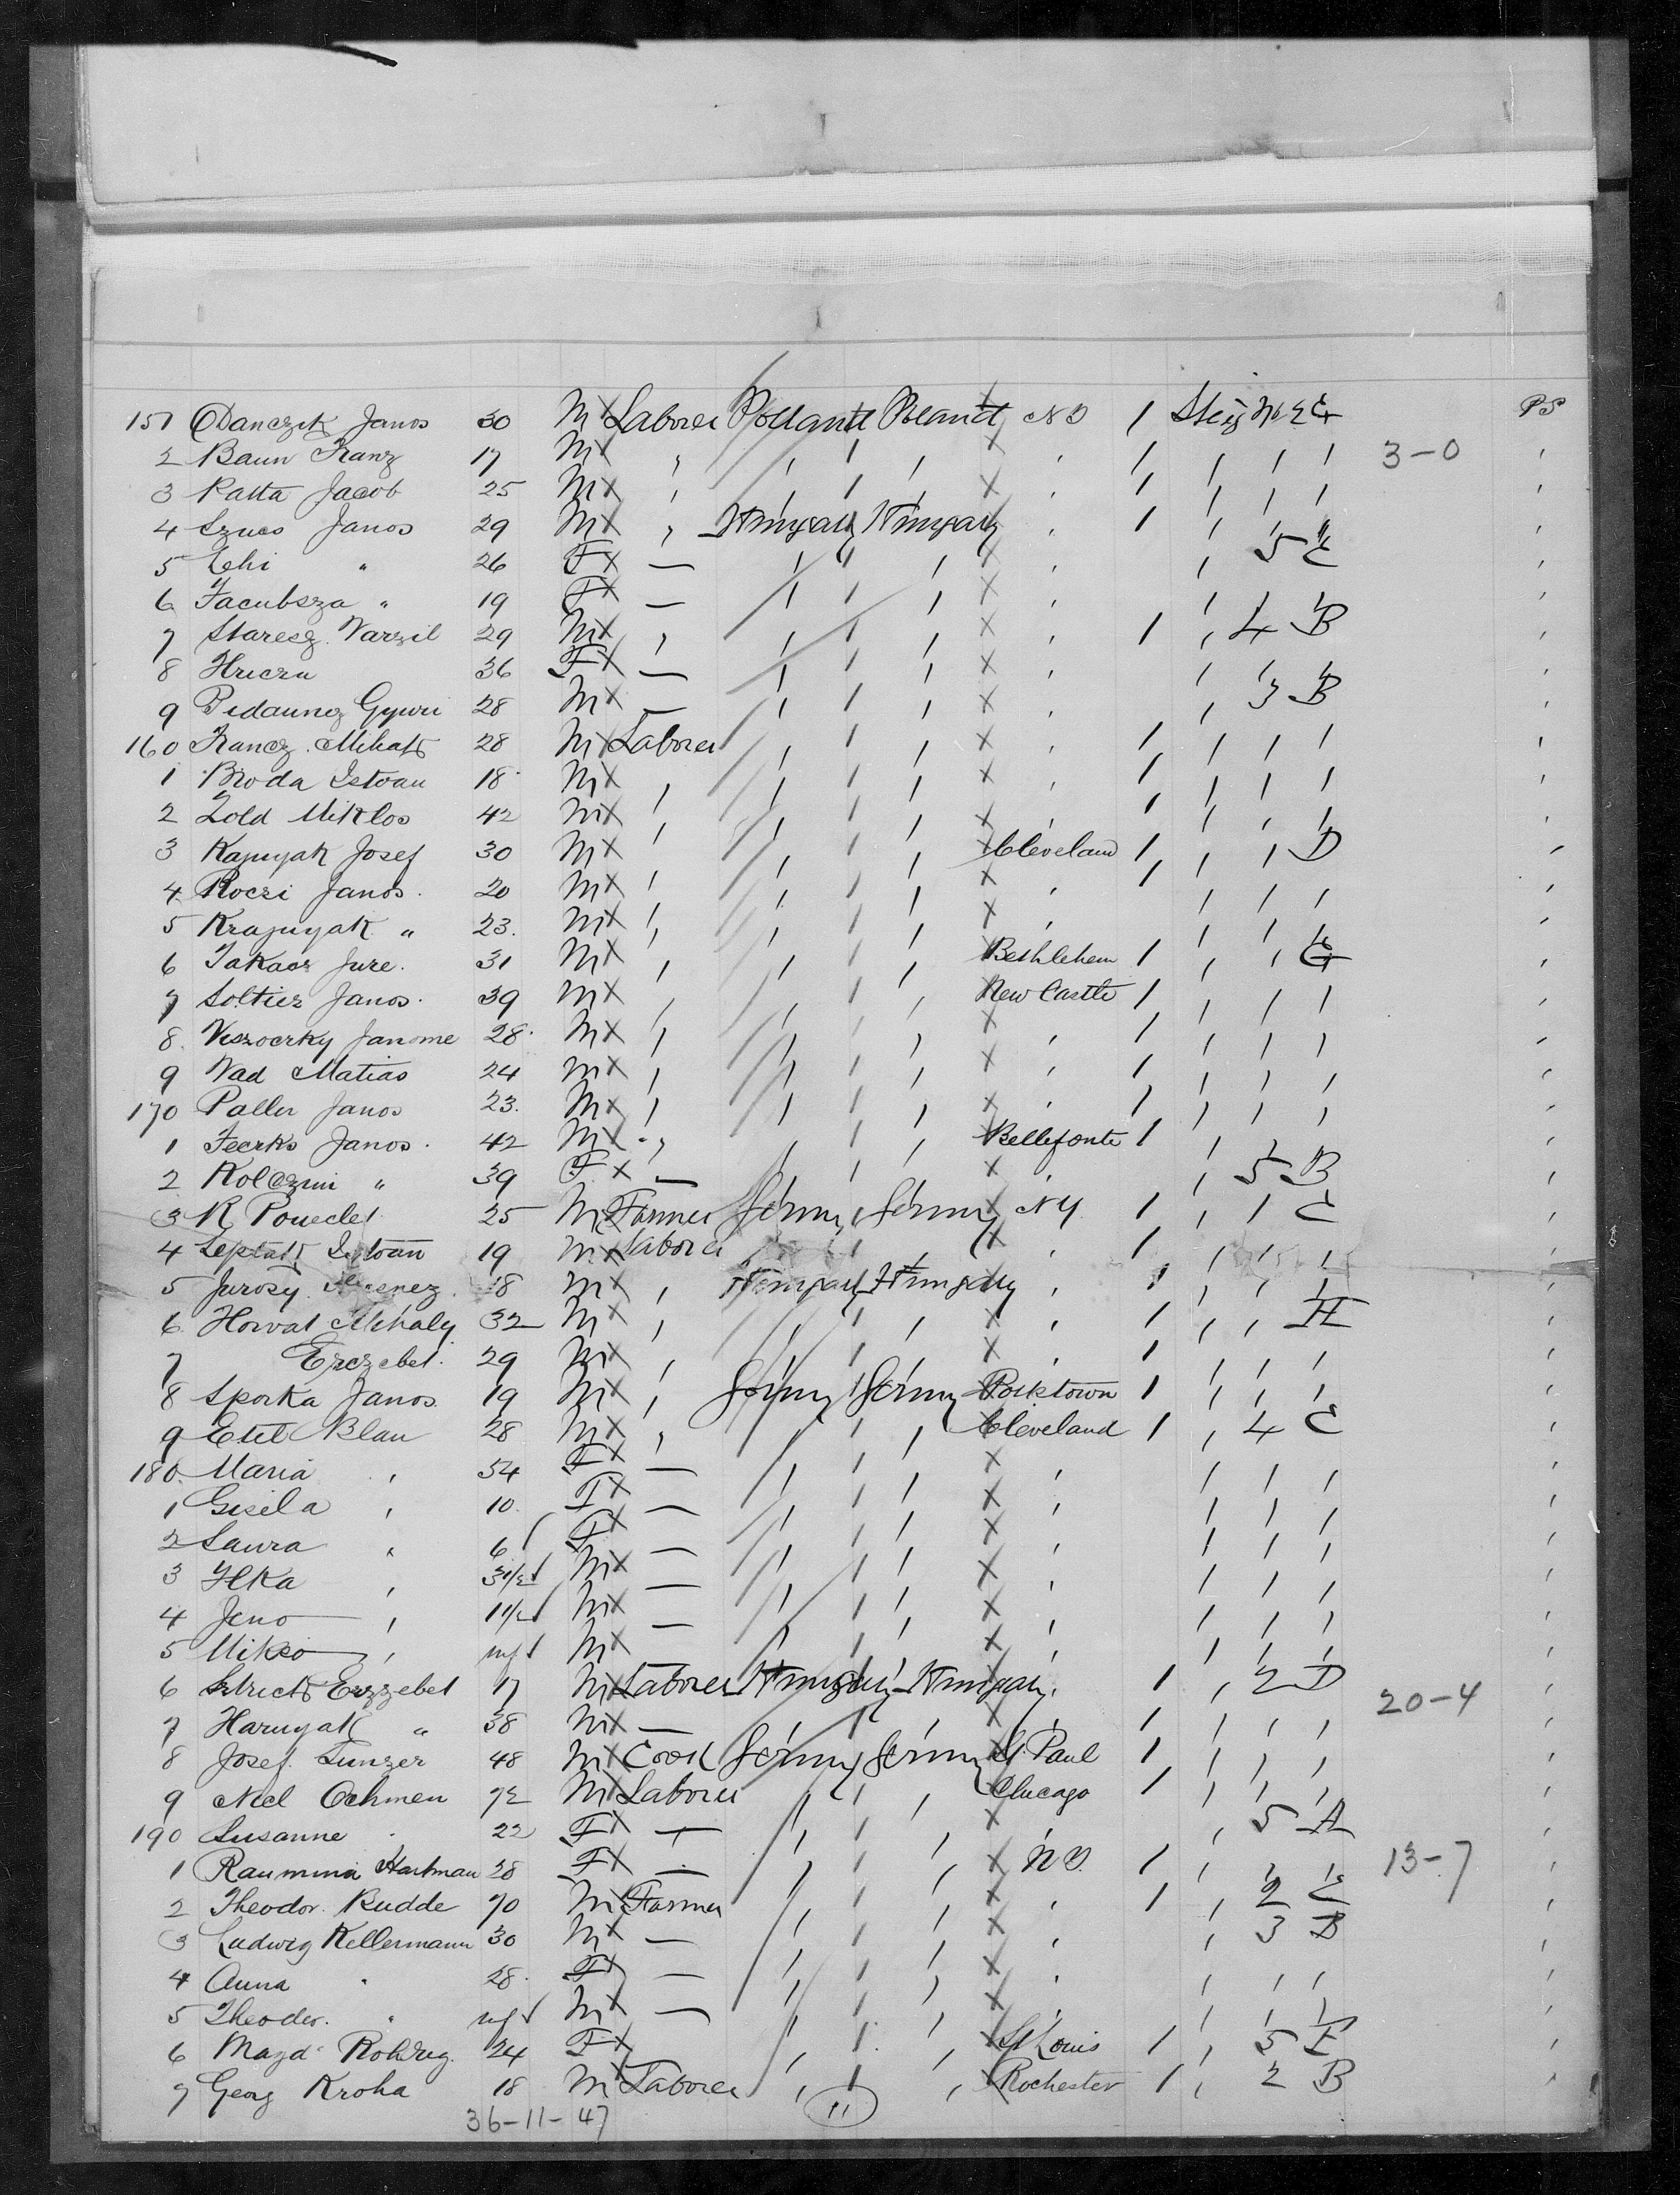 151 Danczik Janos 30 M Laborer Poland Poland N Y 1 Steig No 2 E PS
2 Baun Franz 17 M " " " " " 1 " " " 3-0 "
3 Ratta Jacob 25 M " " " " 1 " " " "
4 Szucs Janos 29 M " Hungary Hungary " 1 " 5 E "
5 " 26 F — " " " " "
6 Jacubsza " 19 F — " " " " " " " "
7 Staresz Varzil 29 M " " " " " 1 " 4 B "
8 Hricza 36 F — " " " " " " "
9 Gyuri 28 M — " " " " " 3 B "
160 Francz Mihaly 28 M Laborer " " " " 1 " " " "
1 Broda Istvan 18 M " " " " " 1 " " " "
2 Zold Miklos 42 M " " " " " 1 " " " "
3 Kajnyak Josef 30 M " " " " Cleveland 1 " " D "
4 Roczi Janos 20 M " " " " " 1 " " " "
5 Krajnyak " 23 M " " " " " " " " "
6 Takacs Jure 31 M " " " " Bethlehem 1 " " E "
7 Solticz Janos 39 M " " " " New Castle 1 " " " "
8 Viszoczky Janome 28 M " " " " " 1 " " " "
9 Vad Matias 24 M " " " " " 1 " " " "
170 Paller Janos 23 M " " " " " 1 " " " "
1 Janos 42 M " " " Bellefonte 1 " "
2 Kolczini " 39 F — " " " " " 5 B "
3 R Pouedel 25 M Farmer Germy " Germy N Y 1 " 1 E "
4 19 M Laborer " " " 1 " " " "
5 Jurosy 18 M " Hungary Hungary " 1 " " " "
6 Horvat Mihaly 32 M " " " " " 1 " " H "
7 Erzebet 29 M " " " " " 1 " " " "
8 Sporka Janos 19 M " Germy " Germy Rocktown 1 " " " "
9 Etel Blau 28 M " " " " Cleveland 1 " 4 E "
180 Maria " 34 F — " " " " " " " "
1 Gisela " 10 F — " " " " " " " "
2 Laura " 6 F — " " " " " " " "
3 Ilka " 3 1/2 M — " " " " " " " "
4 Jeno " 1 1/2 M — " " " " " " " "
5 Mikso " inft M — " " " " " " " "
6 Erzzebet 17 M Laborer Hungary Hungary " 1 " 2 D "
7 Harnyak " 38 M — " " " " 1 " " " 20-4 "
8 Josef Lunzer 48 M Cook Germy Germy St. Paul 1 " " " "
9 Nicl Ochmen 72 M Laborer " " " Chicago 1 " " " "
190 Susanne " 22 F — " " " " " 5 A "
1 Hartman 28 F — " " " N Y. 1 " " " 13-7 "
2 Theodor Rudde 70 M Farmer " " " " 1 " 2 E "
3 Ludwig Kellermann 30 M — " " " " " 3 B "
4 Anna " 28 F — " " " " " " " "
5 Theodor " inft M — " " " " " " " "
6 Magd. Rohrig 24 F " " " St Louis 1 " 5 E "
7 Georg Kroha 18 M Laborer " " " Rochester 1 " 2 B "
36-11-47 11